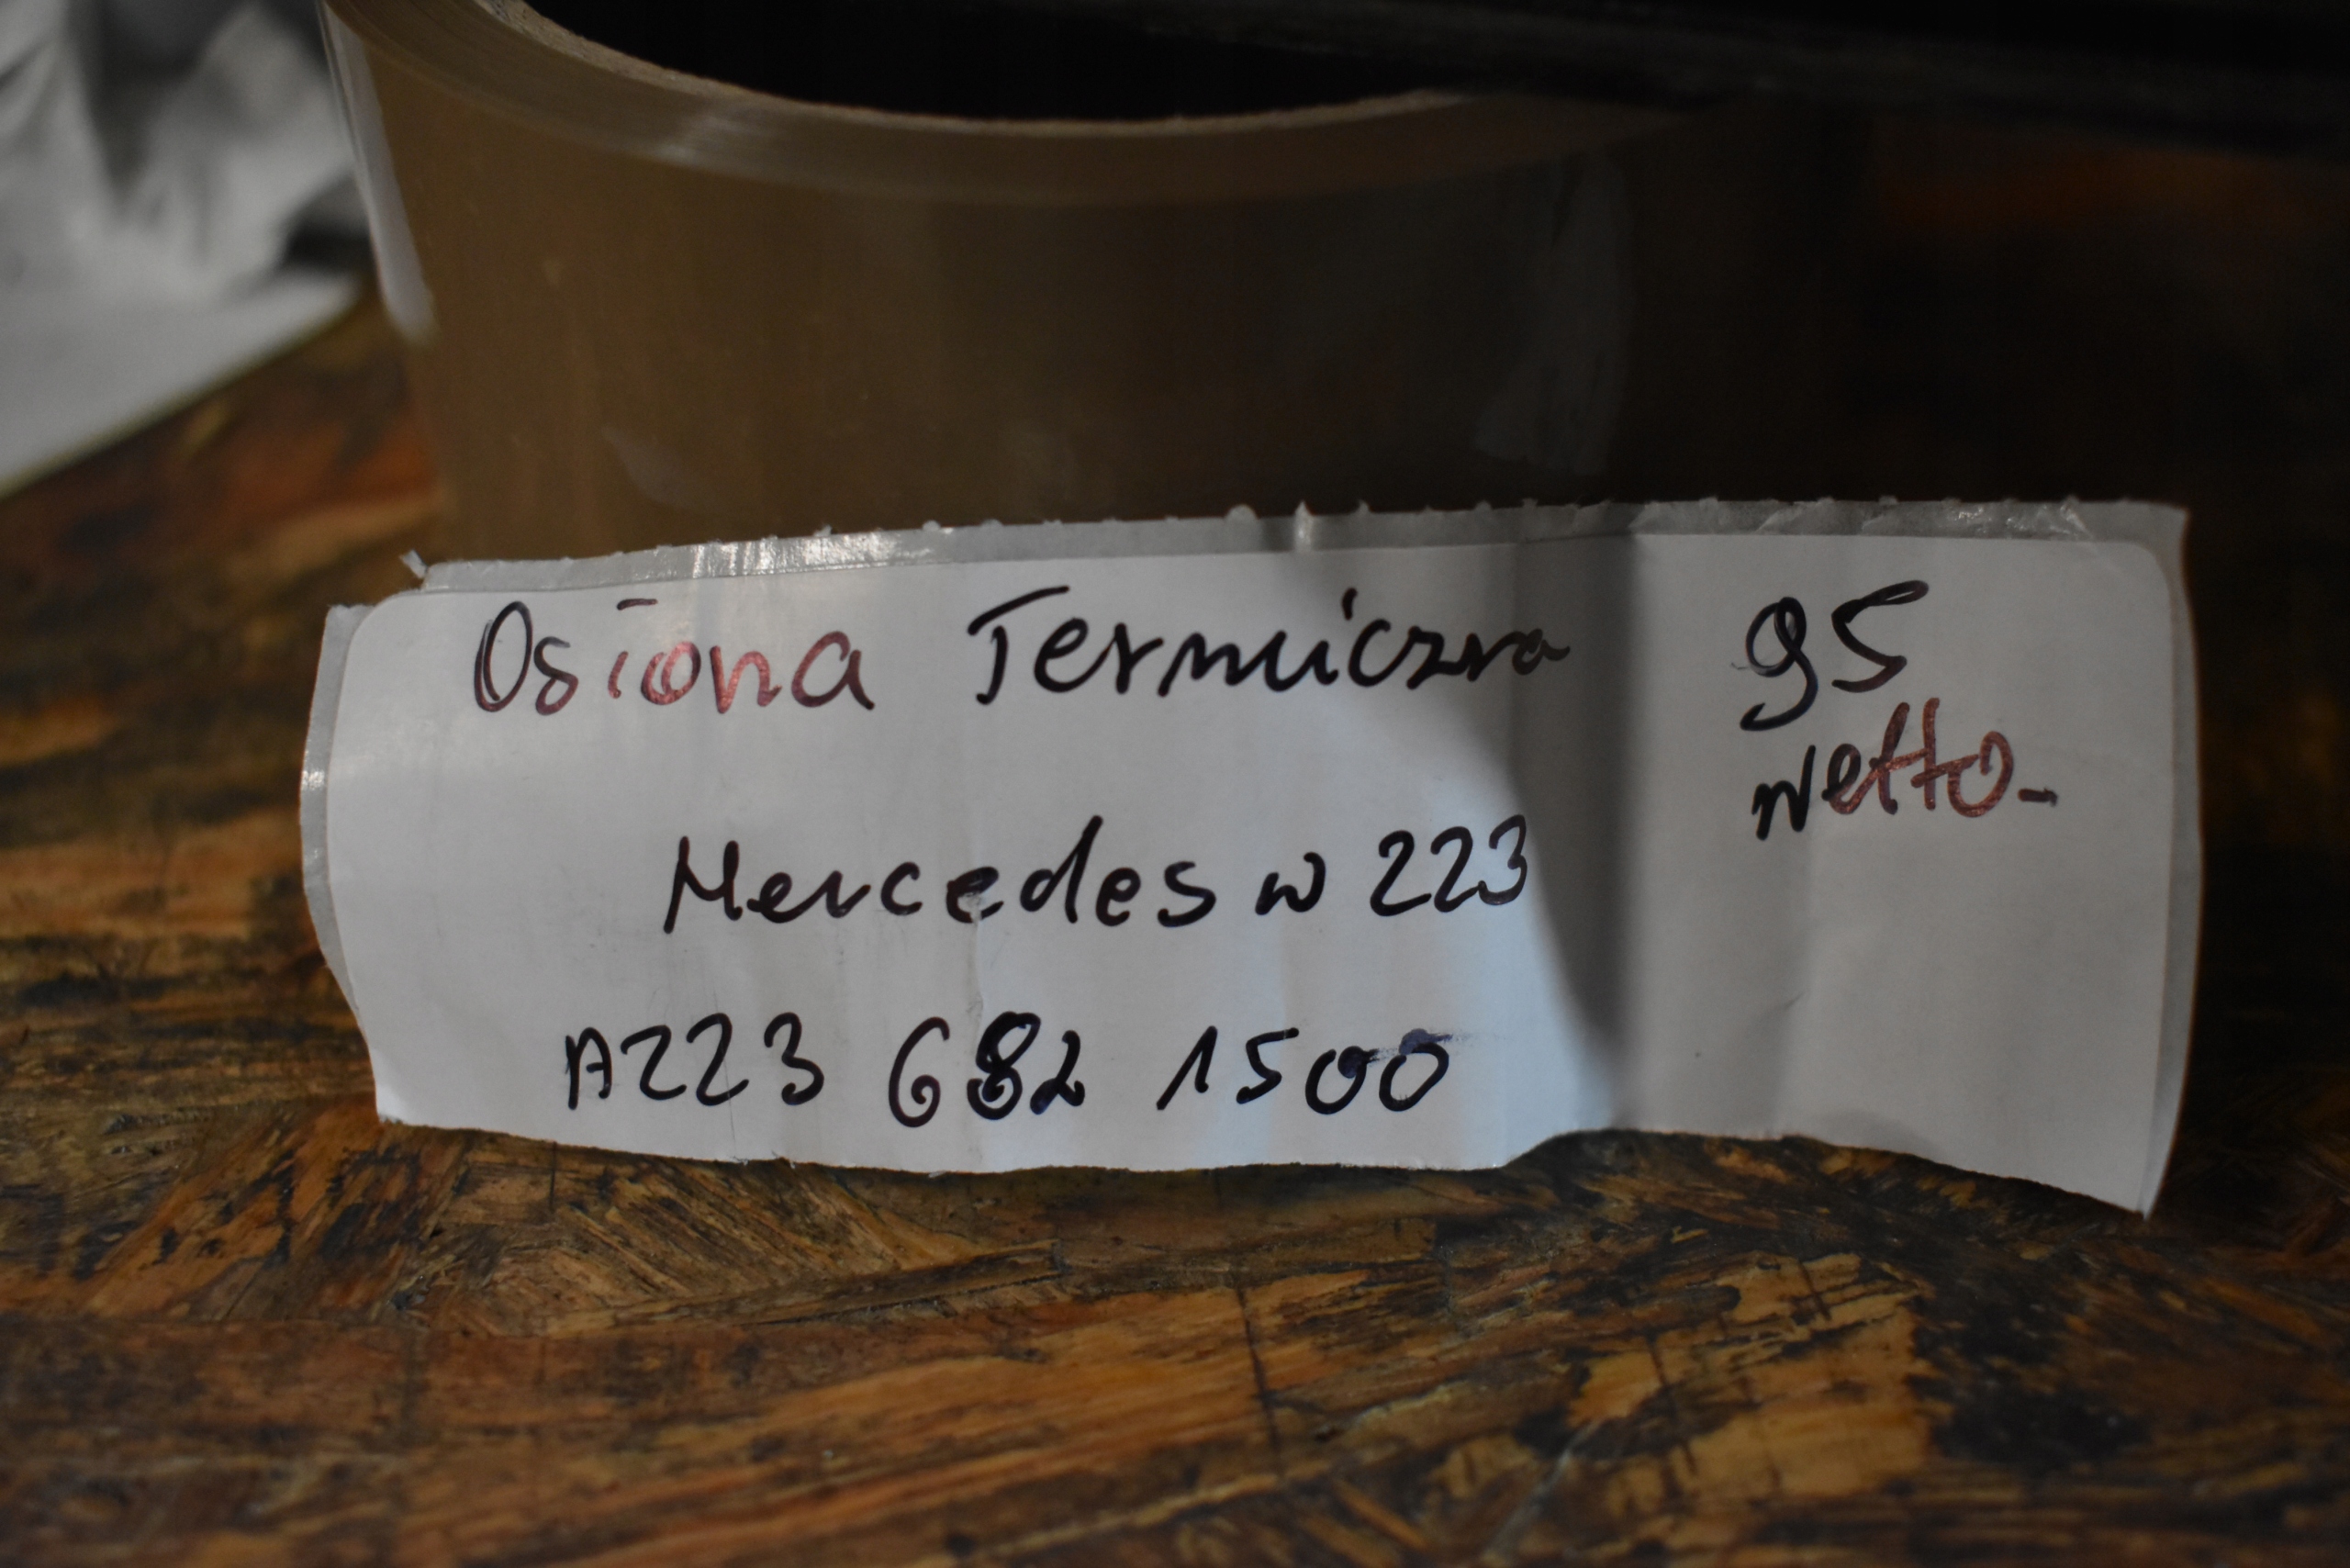 Osłona Termiczna 95
netto-
Mercedes w 223
A223 682 1500